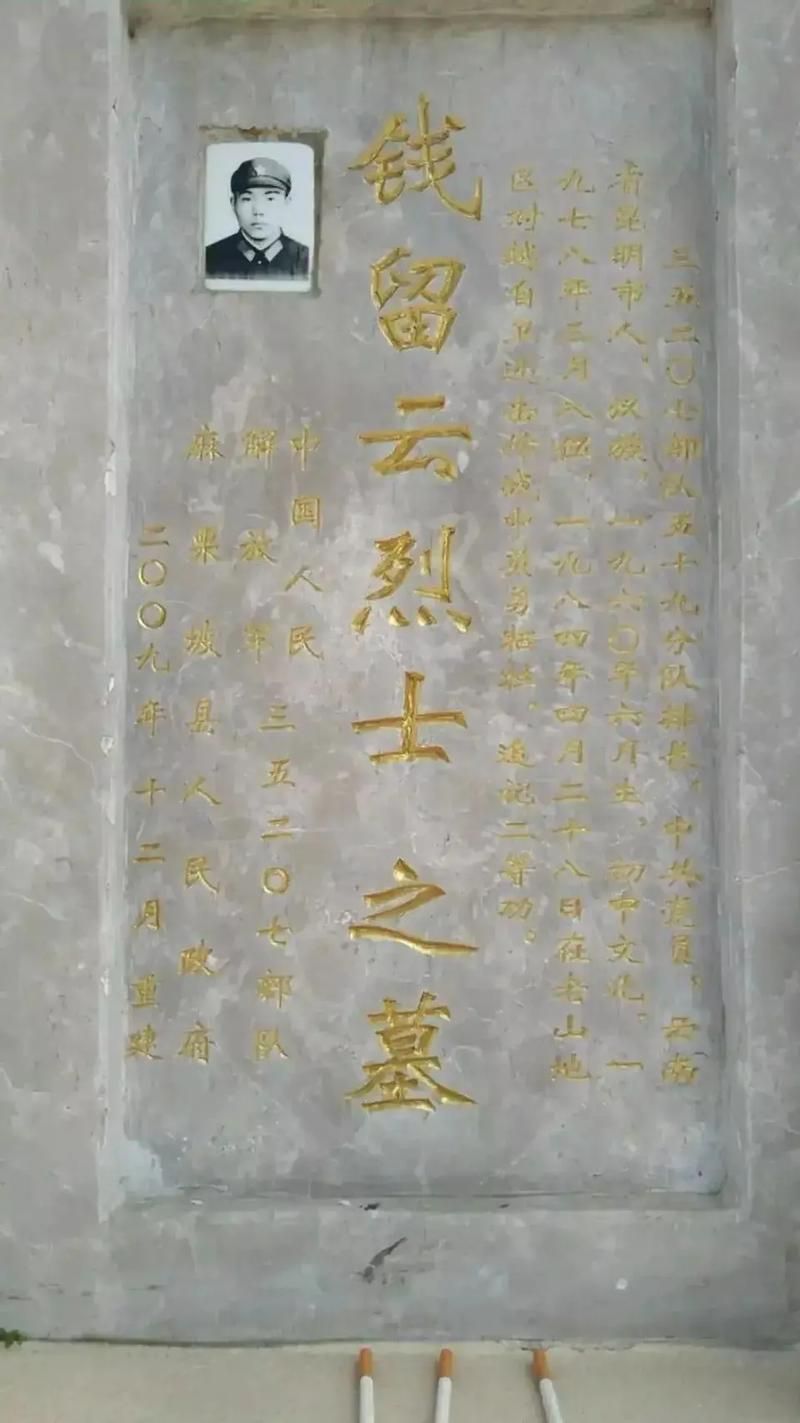 三五二〇七部队五十九分队排长，中共党员，云南
省昆明市人，汉族，一九六〇年六月生，初中文化，一
九七八年三月入伍，一九八四年四月二十八日在老山地
区对越自卫还击作战中英勇牺牲，追记二等功。
钱留云烈士之墓
中国人民
解放军三五二〇七部队
麻栗坡县人民政府
二〇〇九年十二月重建